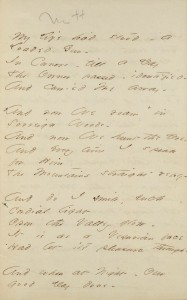 My Life had stood – a
Loaded Gun –
In Corners – till a Day
The Owner passed – identified –
And carried Me away –
And now We roam in
Sovreign Woods –
And now We hunt the Doe –
And every time I speak
for Him
The Mountains straight reply –
And do I smile, such
cordial light
Opon the Valley glow –
It is as a Vesuvian face
Had let it's pleasure through –
And when at Night – Our
good Day done –